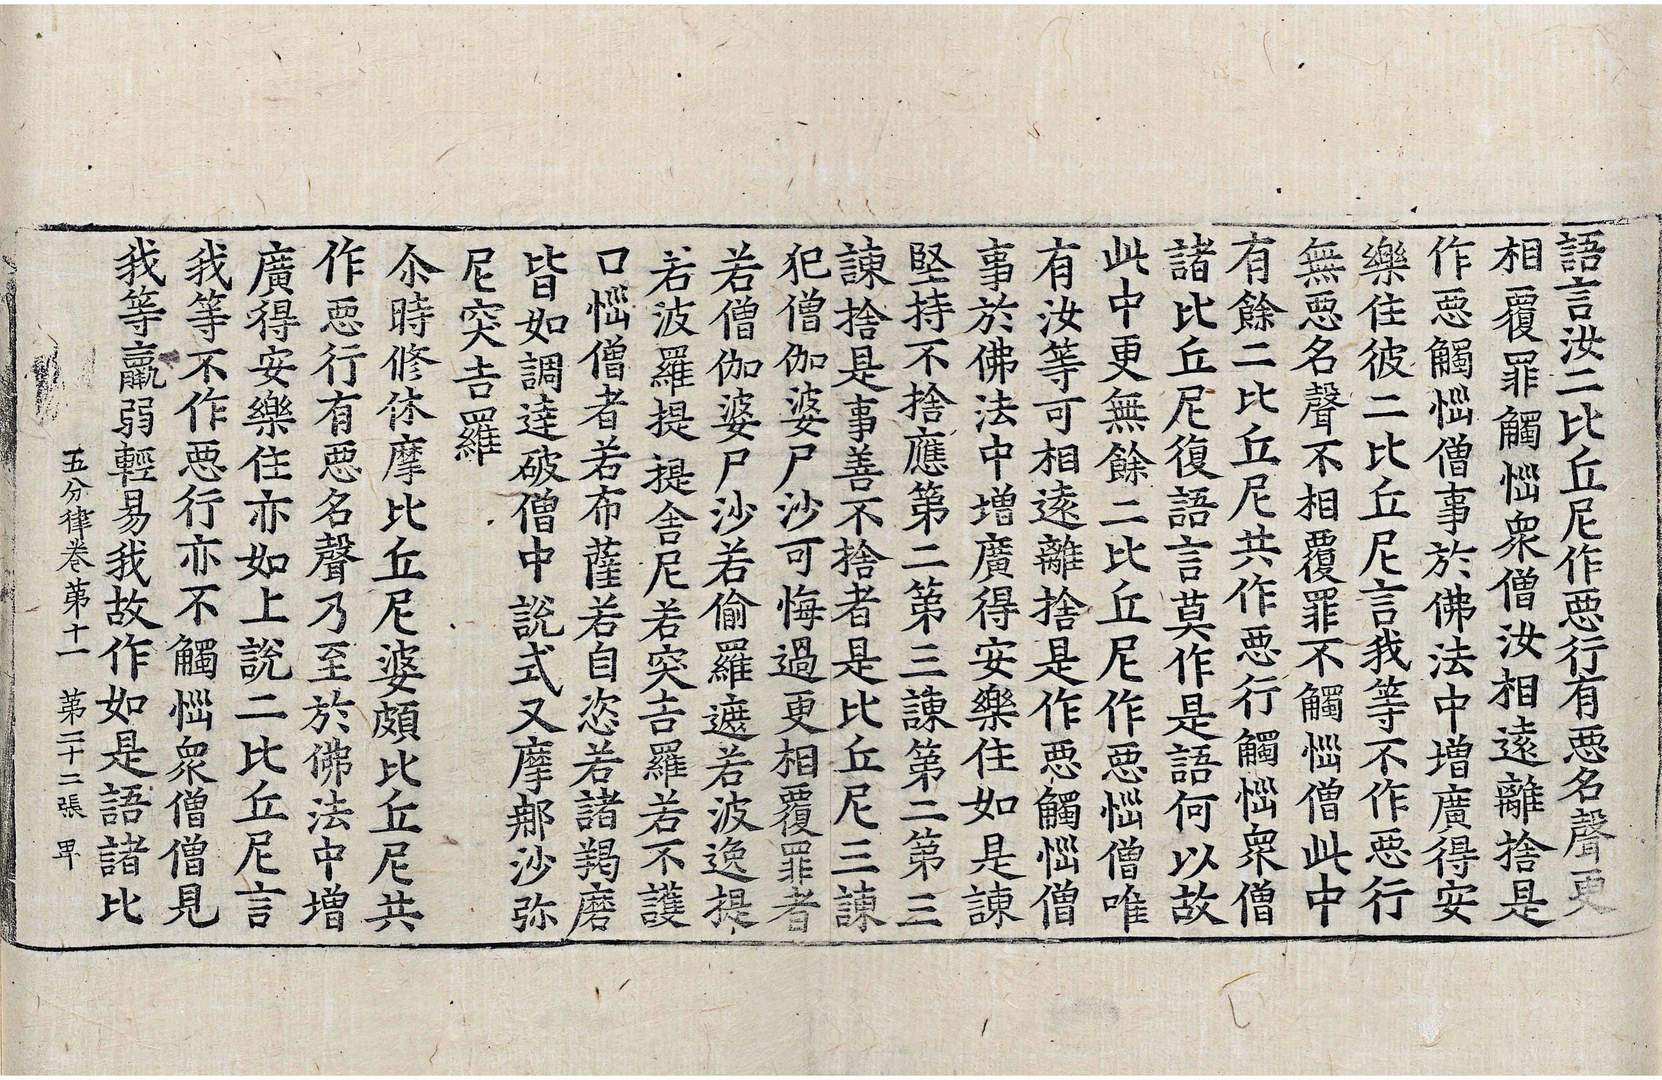 語言汝二比丘尼作惡行有惡名聲更
相覆罪觸惱衆僧汝相遠離捨是
作惡觸惱僧事於佛法中增廣得安
樂住彼二比丘尼言我等不作惡行
無惡名聲不相覆罪不觸惱僧此中
有餘二比丘尼共作惡行觸惱衆僧
諸比丘尼復語言莫作是語何以故
此中更無餘二比丘尼作惡惱僧唯
有汝等可相遠離捨是作惡觸惱僧
事於佛法中增廣得安樂住如是諫
堅持不捨應第二第三諫第二第三
諫捨是事善不捨者是比丘尼三諫
犯僧伽婆尸沙可悔過更相覆罪者
若僧伽婆尸沙若偷羅遮若波逸提
若波羅提提舍尼若突吉羅若不護
口惱僧者若布薩若自恣若諸羯磨
皆如調達破僧中說式叉摩那沙弥
尼突吉羅
尒時修休摩比丘尼婆頗比丘尼共
作惡行有惡名聲乃至於佛法中增
廣得安樂住亦如上說二比丘尼言
我等不作惡行亦不觸惱衆僧僧見
我等羸弱輕易我故作如是語諸比
五分律卷第十一 第二十二張 甼